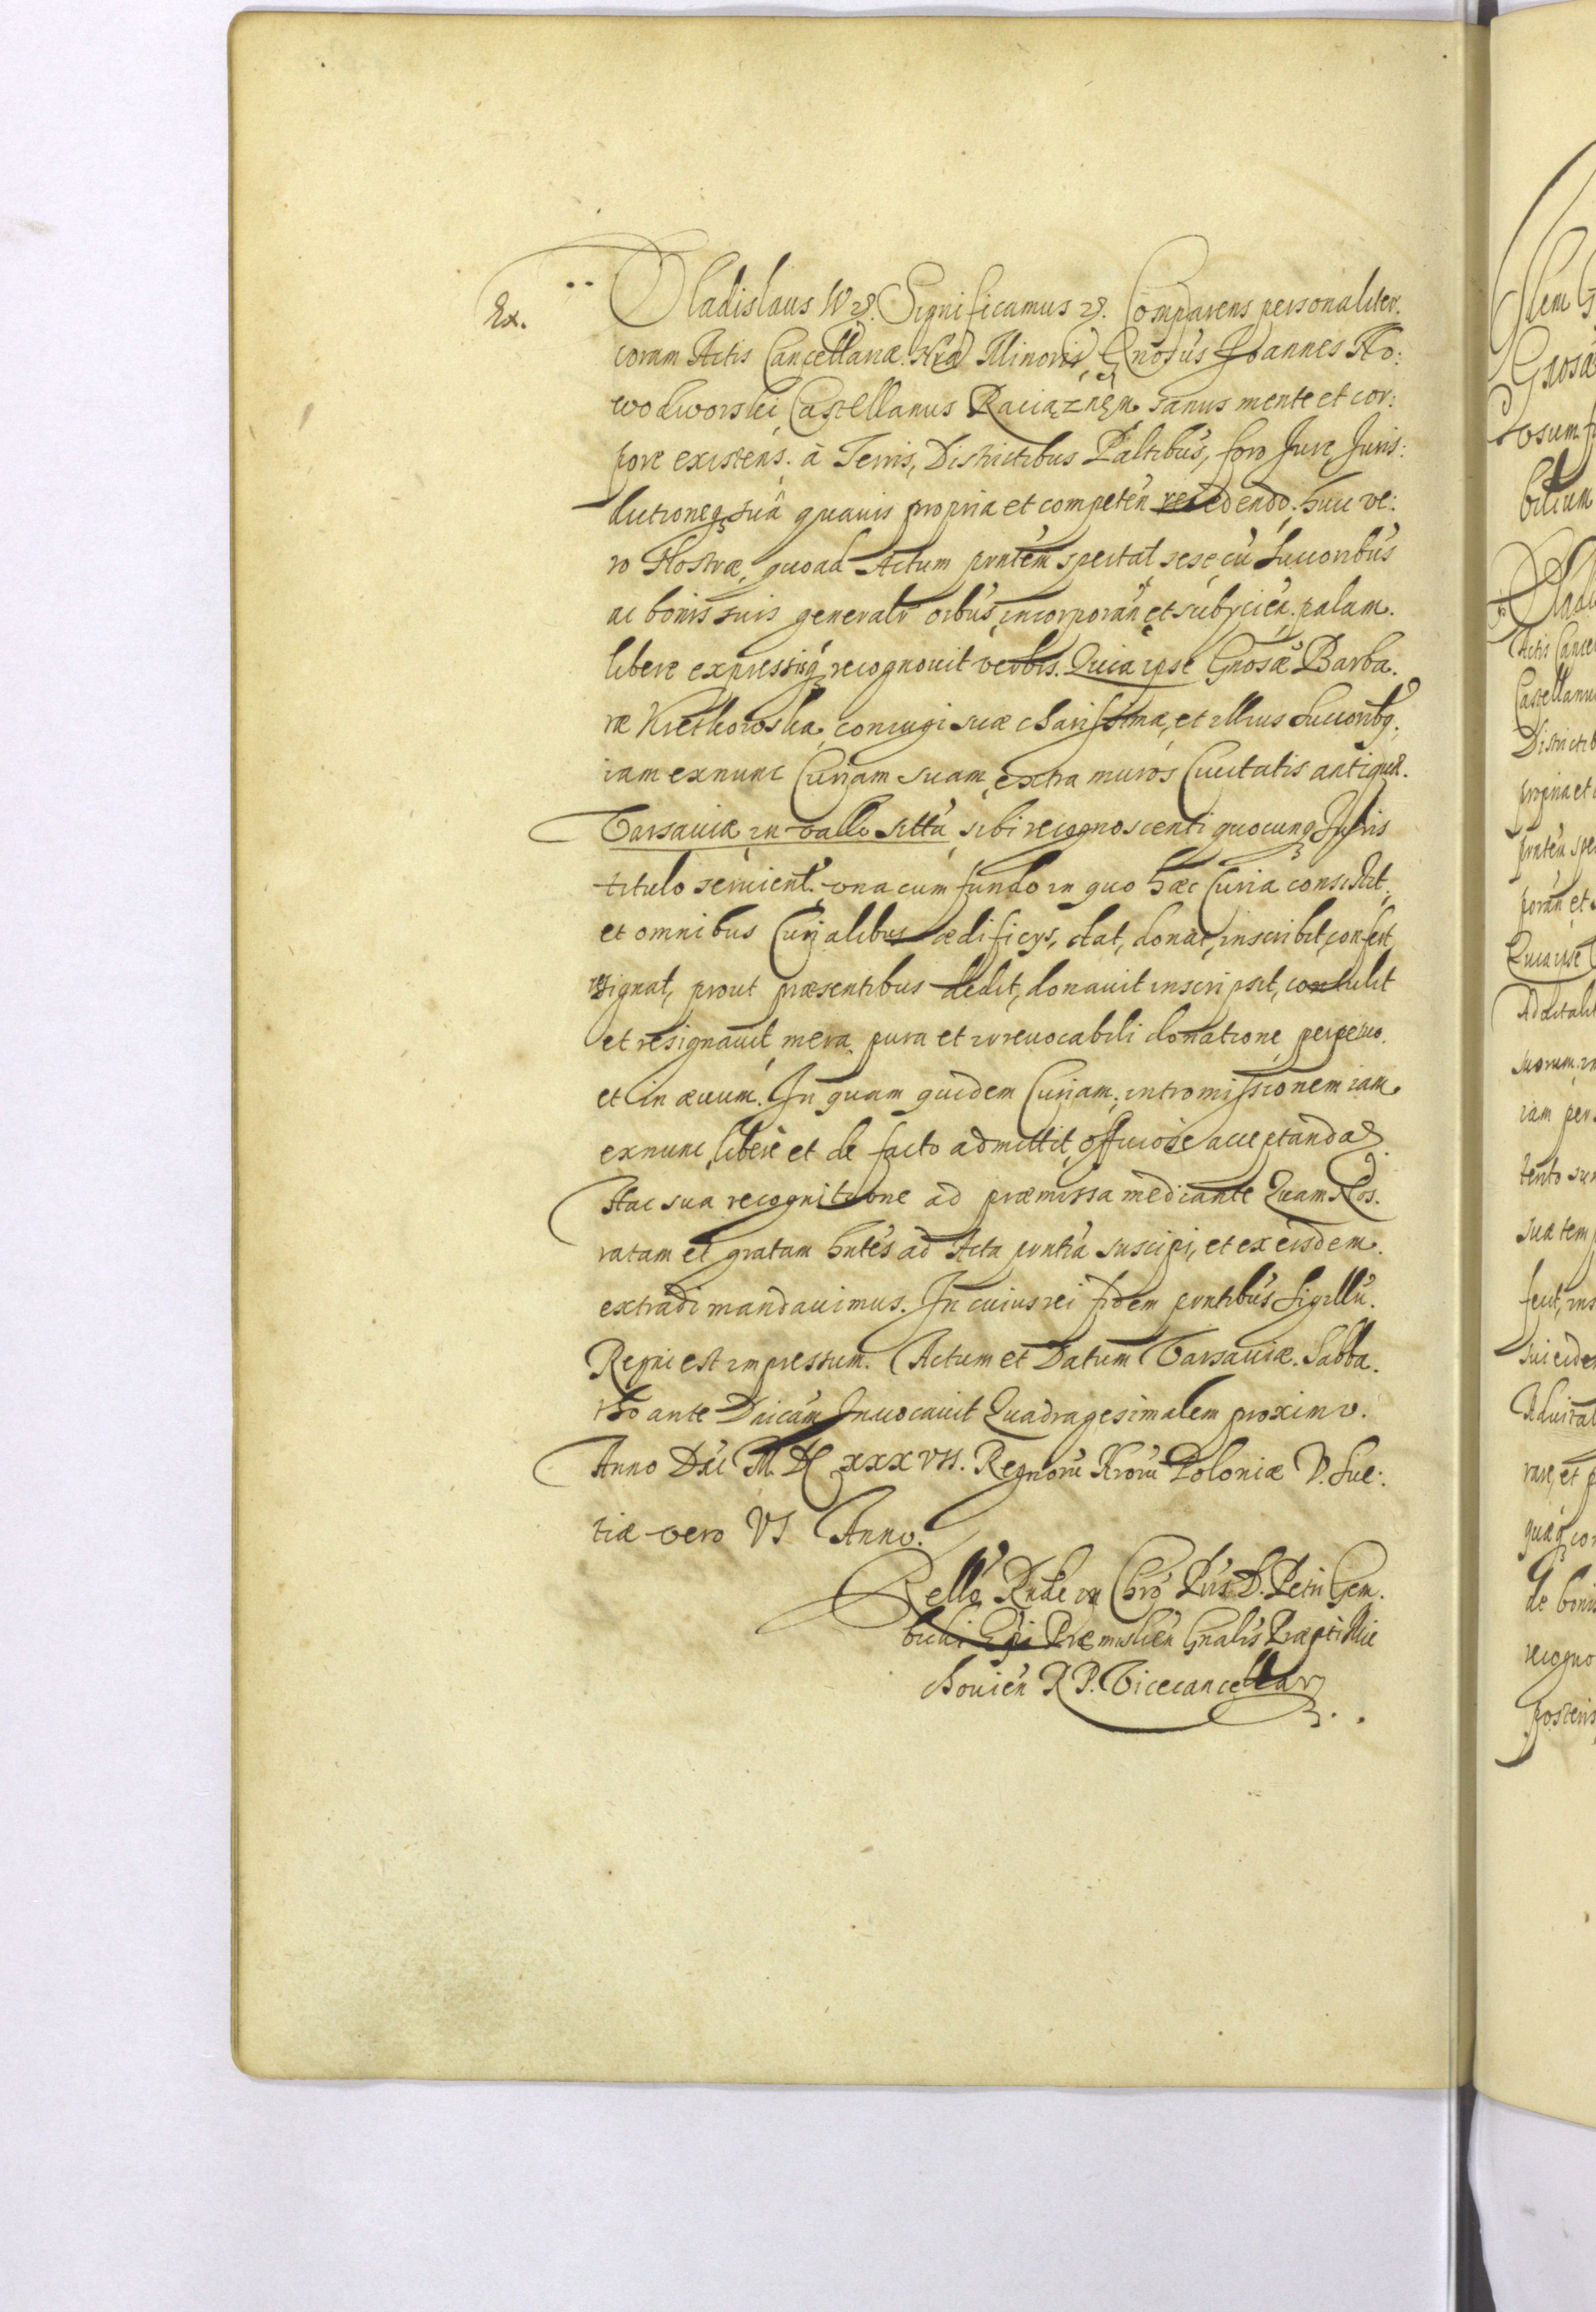 Ex.
Vladislaus IV &. Significamus &. Comparens personaliter.
coram Actis Cancellariæ Nræ Minoris, Gnosus Joannes No:
wodworski, Castellanus Raciążnen, sanus mente et cor:
pore existens. à Terris, Districtibus Paltibus, foro Jure, Juris:
dictioneq sua quavis propria et competen recedendo; huic ve:
ro Nostræ, quoad Actum pntem spectat sese cu Succoribus
ac bonis suis generalr oibus, incorporan et subijcien. palam.
libere expressisq recognovit verbis. Quia ipse Gnosæ Barba.
ræ Kretkowska, coniugi suæ charissimæ, et illius Succoribq,
iam exnunc Curiam suam, extra muros Civitatis antiquæ.
Varsaviæ in vallo sittu, sibi recognoscenti quocunq Juris
titulo servient. una cum fundo in quo hæc Curia consistit.
et omnibus Curialibus ædificijs, dat, donat, inscribit, confert,
resignat, prout præsentibus dedit, donavit inscripsit, contulit
et resignavit, mera, pura et irrevocabili donatione, perpetuo.
et in ævum. In quam quidem Curiam, intromissionem iam.
exnunc, libere et de facto admittit, officiose acceptanda.
Hac sua recognitione ad præmissa mediante Quam Nos.
ratam et gratam hntes ad Acta pntia suscipi, et ex eisdem.
extradi mandavimus. In cuius rei fidem pntibus Sigillu.
Regni est impressum. Actum et Datum Varsaviæ. Sabba.
tho ante Dnicam Invocavit Quadragesimalem proximo.
Anno Dni M. DC XXXVII. Regnoru Nroru Poloniæ V. Sue:
tiæ vero VI Anno.
Rello Rndi in Chro Pris D. Petri Gem.
bicki Epi Præmislien Gnalis Præpti Mie
chovien R P. Vicecancellar